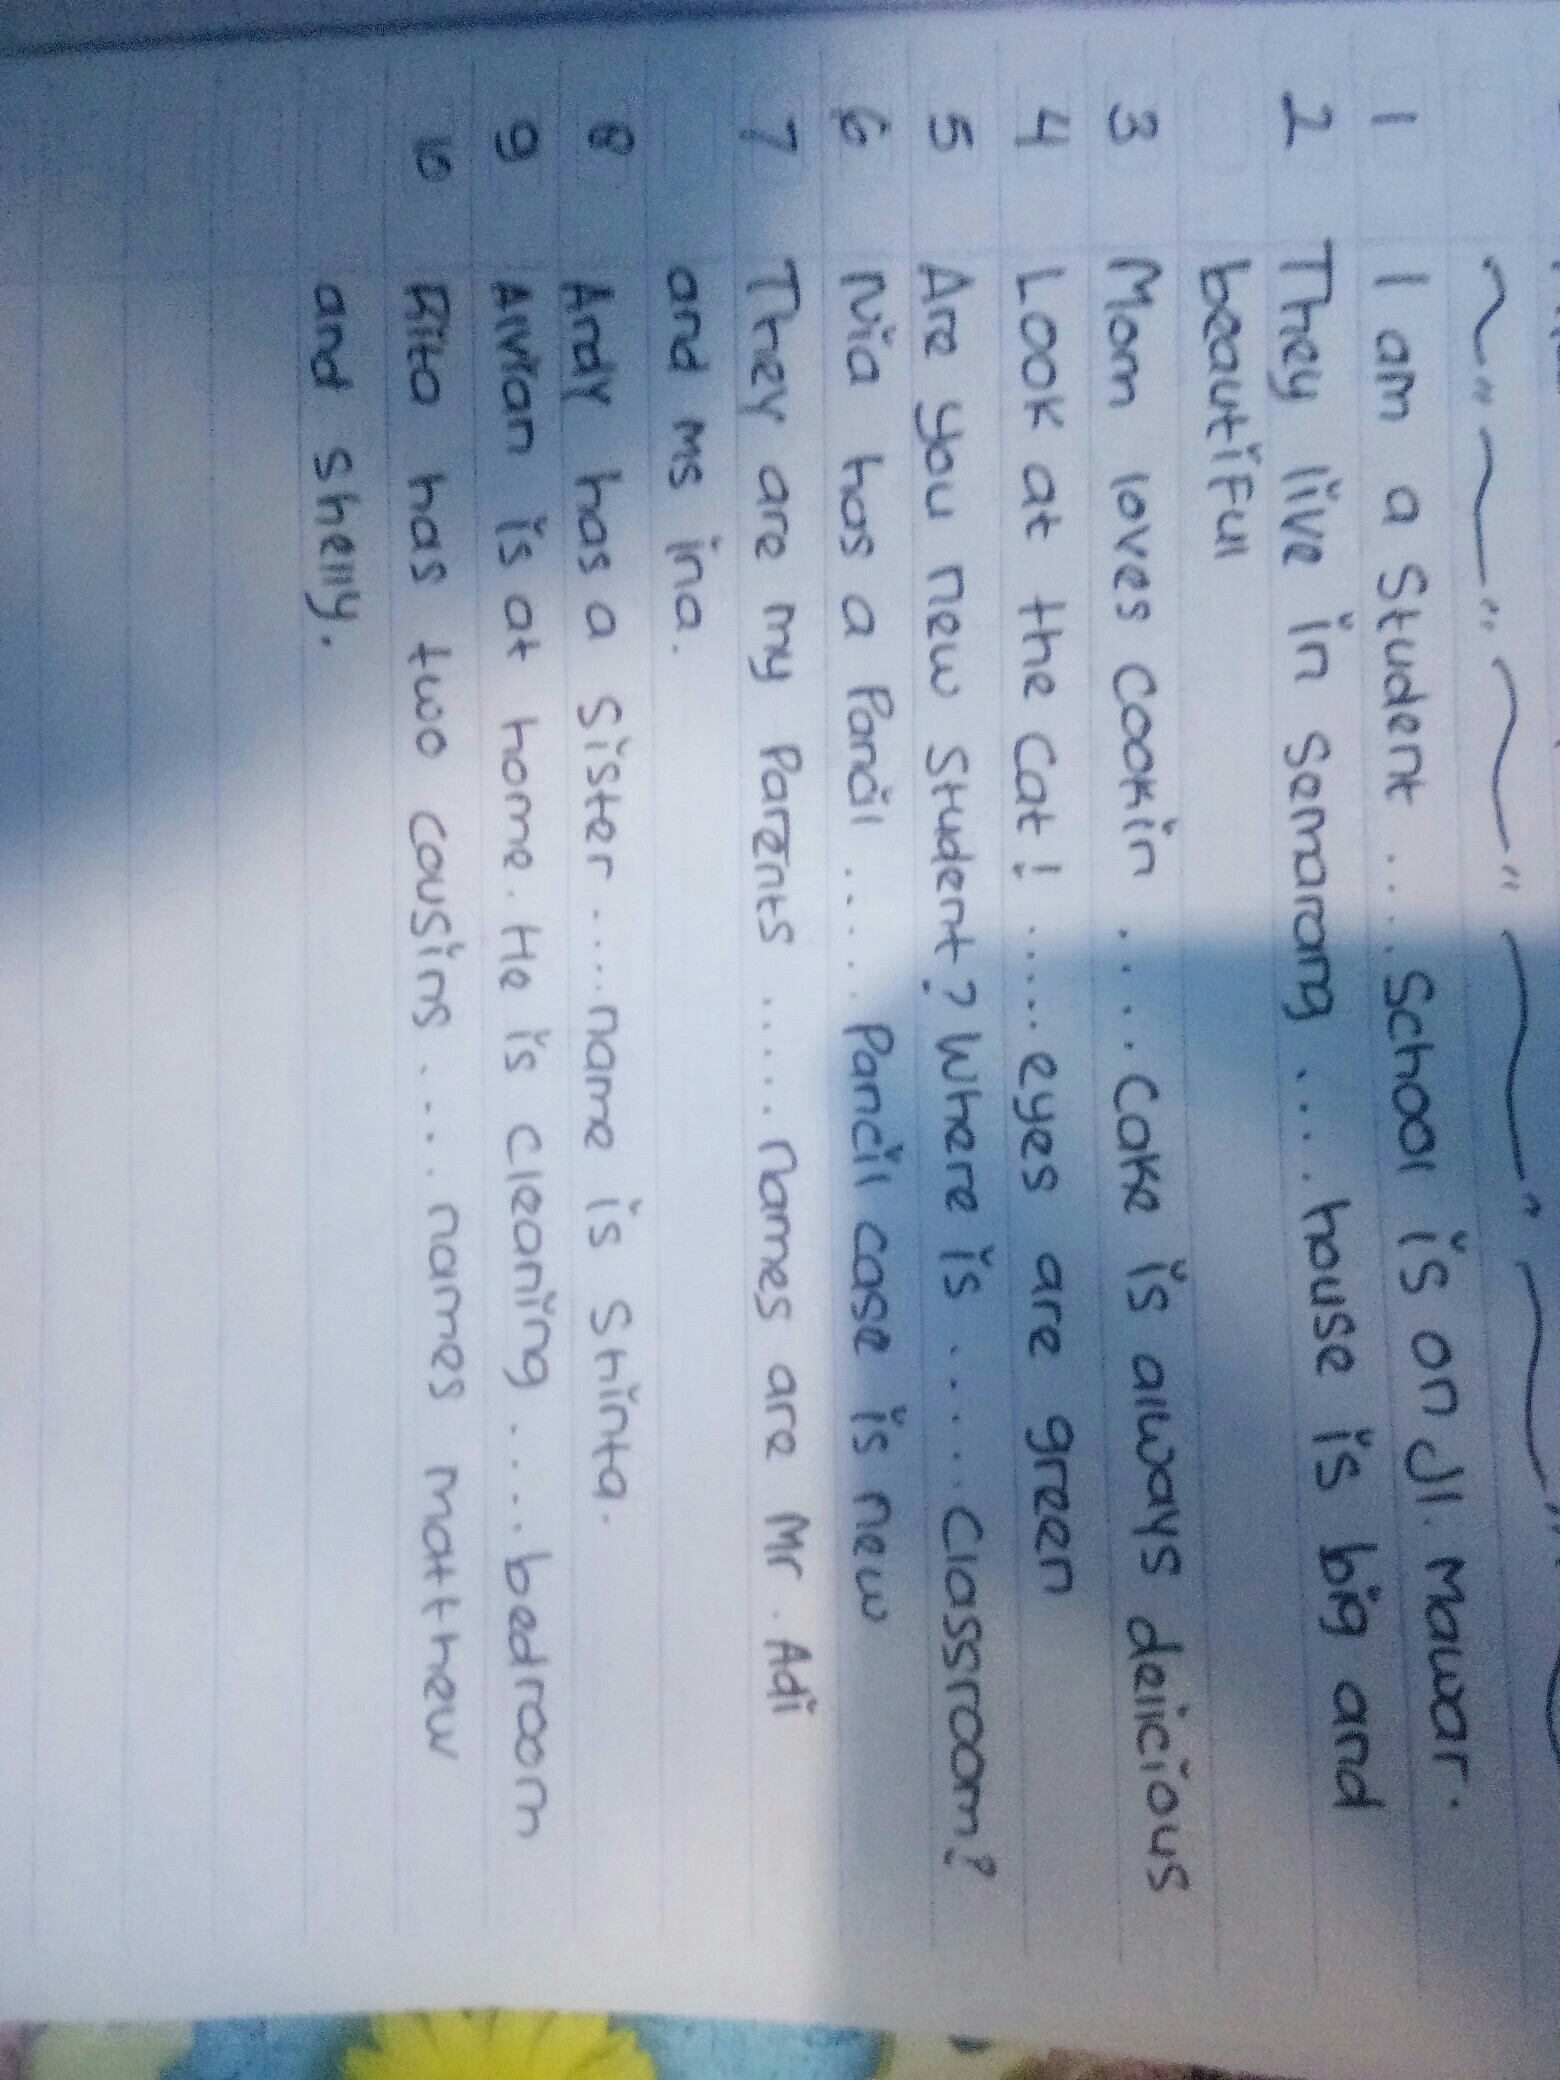 1 I am a Student .... School is on Jl. Mawar.
2 They live in Semarang .... house is big and
beautiful
3 Mom loves cookin .... Cake is always delicious
4 Look at the Cat! ..... eyes are green
5 Are you new Student? Where is .... Classroom?
6 Nia has a Pancil ..... Pancil case is new
7 They are my Parents ..... names are Mr. Adi
and ms ina.
8 Andy has a Sister .... name is Shinta.
9 Alvian is at home. He is cleaning .... bedroom
10 has two cousins .... names matthew
and shelly.